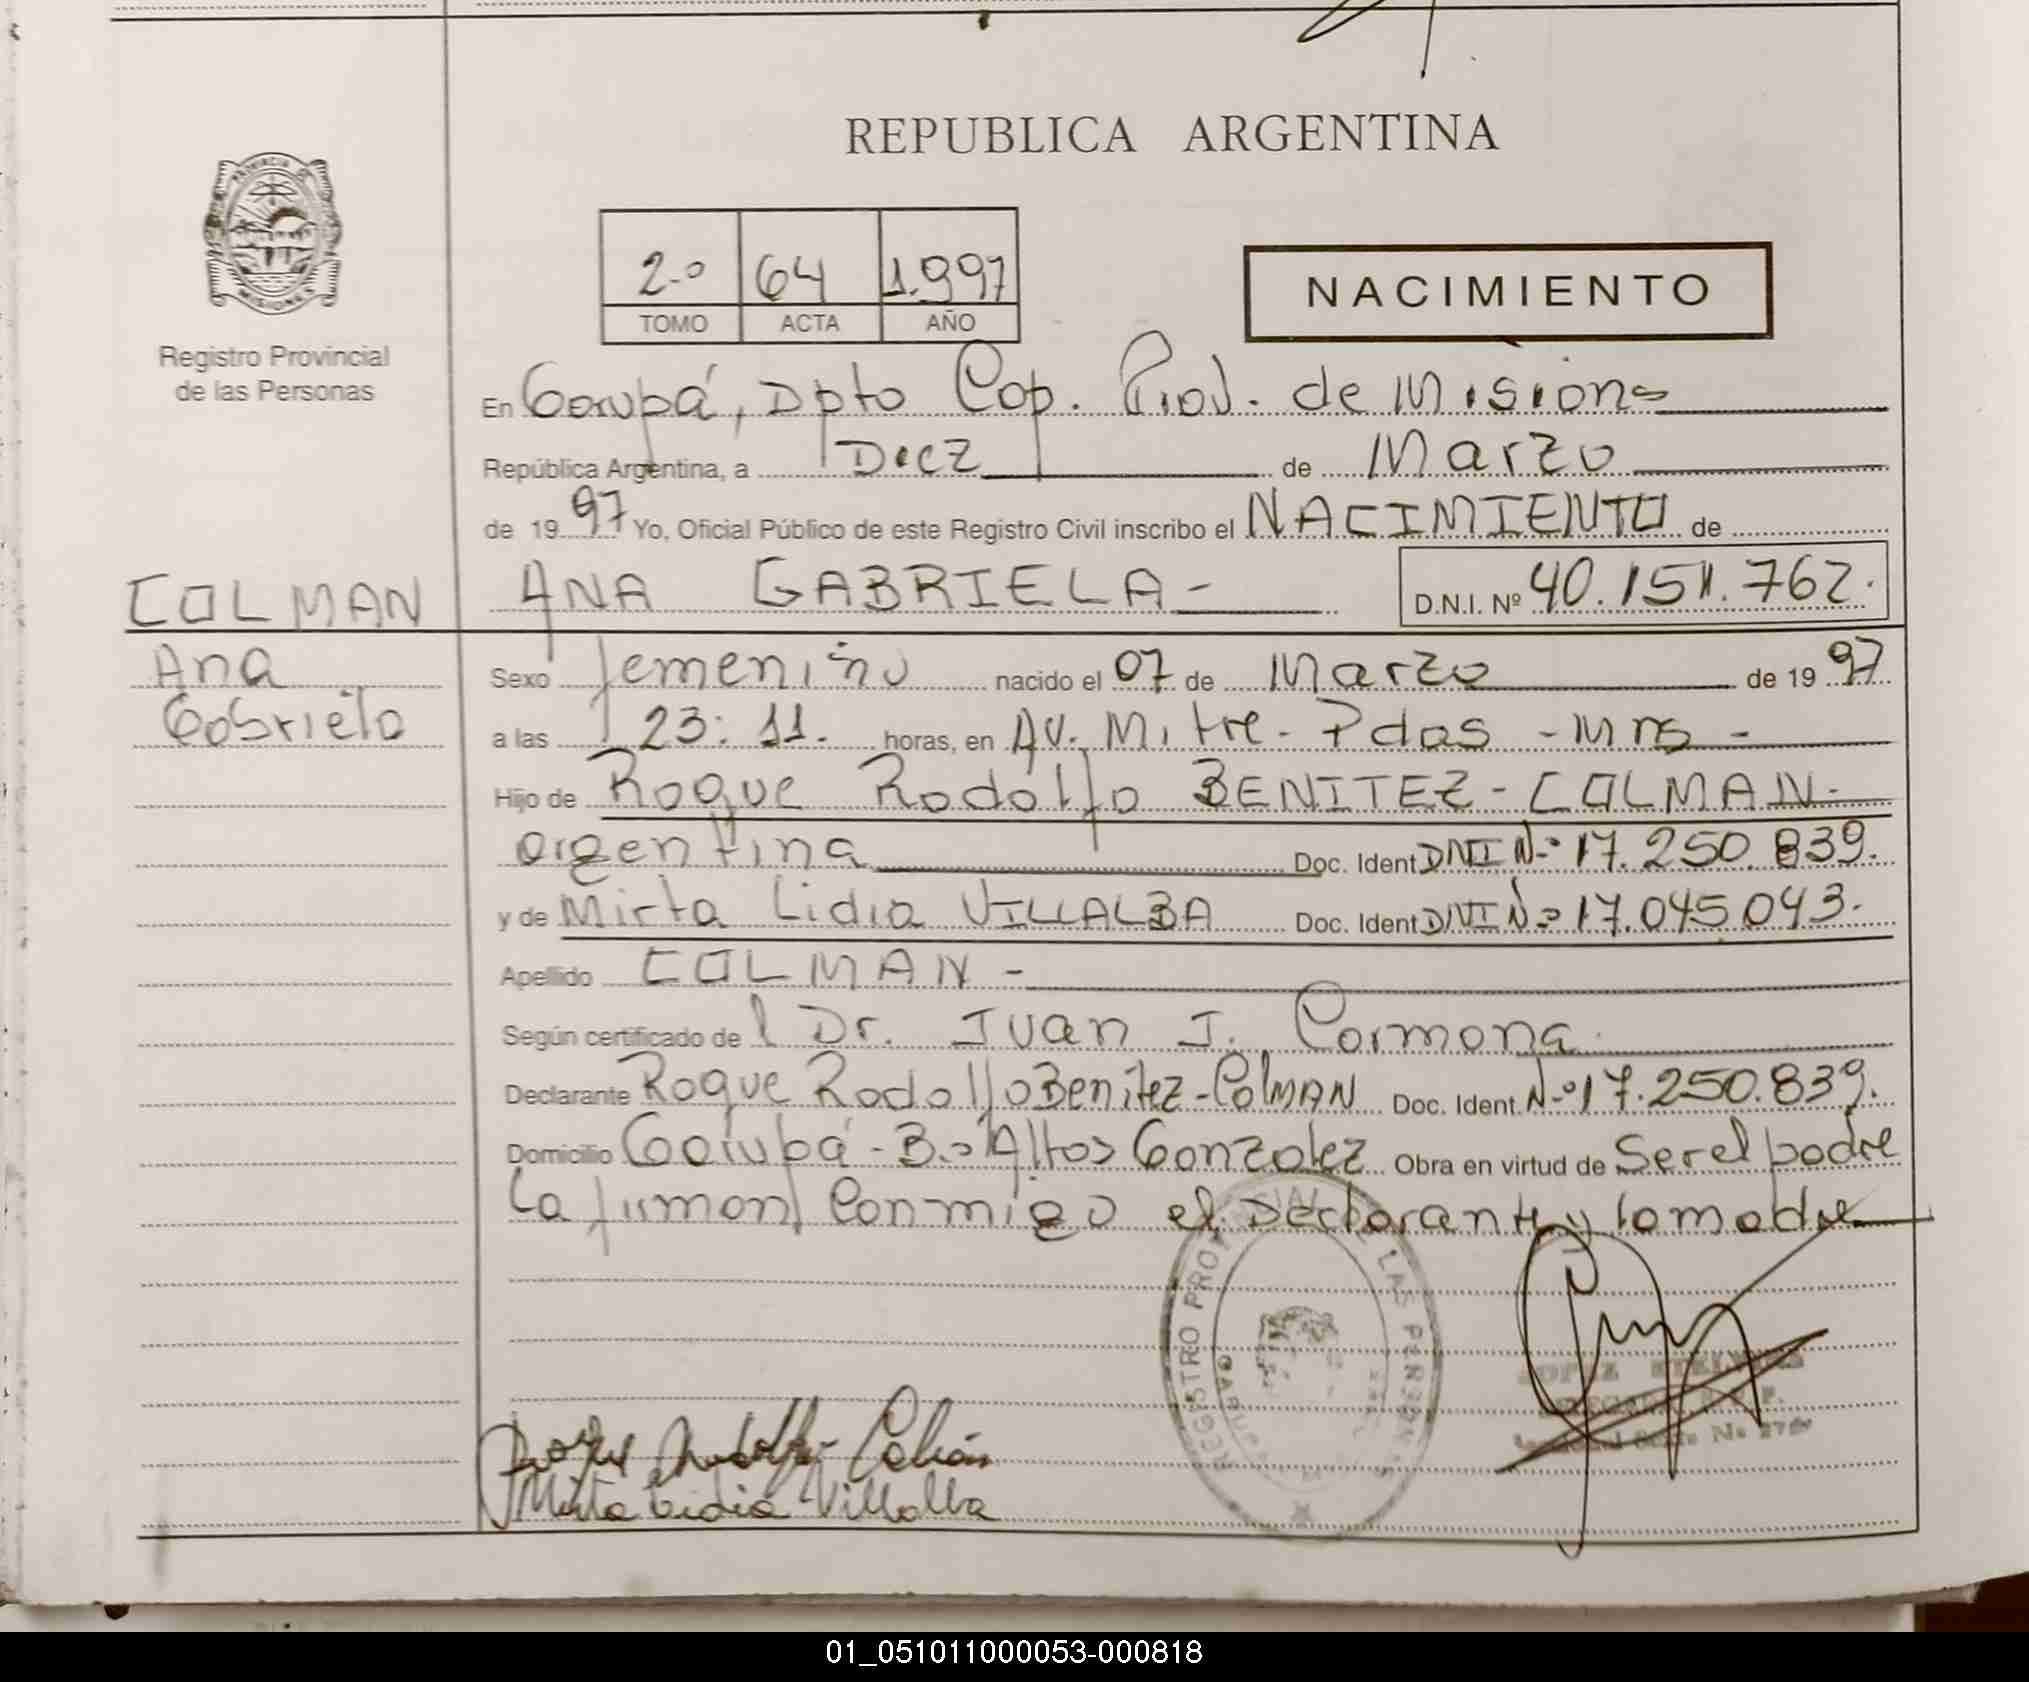 REPUBLICA ARGENTINA
PROVINCIA DE MISIONES
Registro Provincial
de las Personas
2.º 64 1.997
TOMO ACTA AÑO
NACIMIENTO
En Garupá, Dpto Cap. Prov. de Misiones
República Argentina, a Diez de Marzo
de 1997 Yo, Oficial Público de este Registro Civil inscribo el NACIMIENTO de
COLMAN
Ana
Gabriela
ANA GABRIELA - D.N.I. Nº 40.151.762.
Sexo femenino nacido el 07 de Marzo de 1997
a las 23:11. horas, en Av. Mitre - Pdas - Mnes -
Hijo de Roque Rodolfo BENITEZ - COLMAN -
argentina Doc. Ident DNI Nº 17.250.839.
y de Mirta Lidia VILLALBA Doc. Ident DNI Nº 17.045.043.
Apellido COLMAN -
Según certificado del Dr. Juan J. Carmona
Declarante Roque Rodolfo Benitez - Colman Doc. Ident. Nº 17.250.839.
Domicilio Garupá - Bº Altos Gonzalez Obra en virtud de Ser el padre
La firman conmigo el Declarante y la madre
REGISTRO PROVINCIAL DE LAS PERSONAS
GARUPA
Mirta Lidia Villalba
01_051011000053-000818